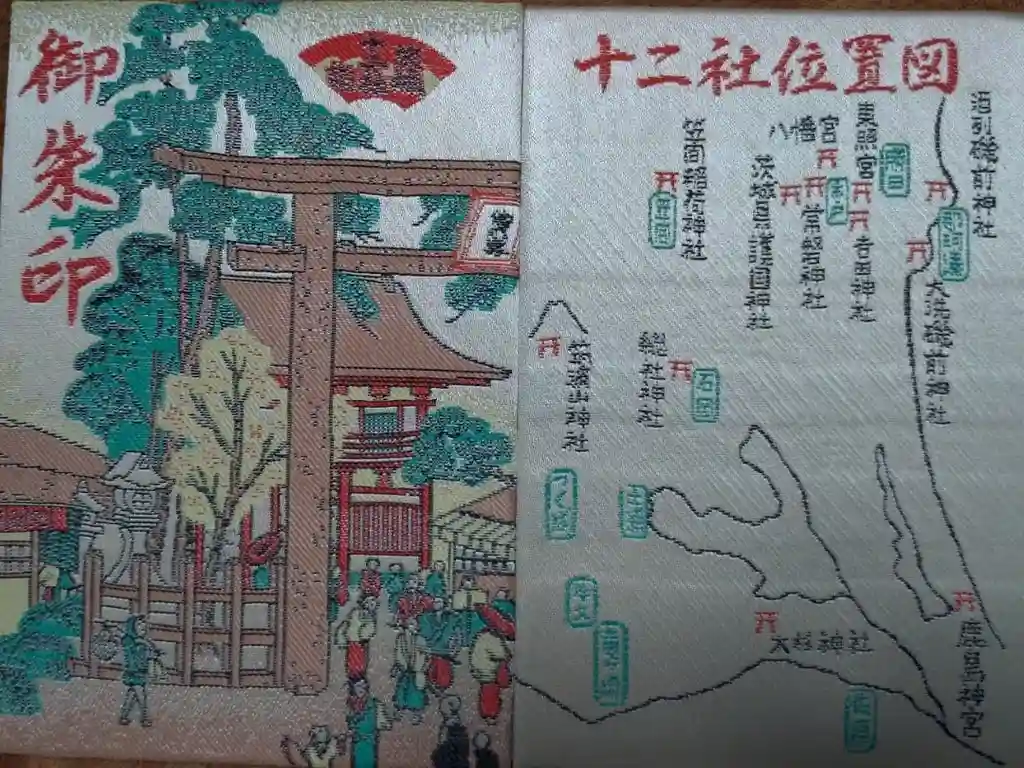 御朱印
常陸
十二社位置図
酒列磯前神社
東照宮
八幡宮
笠間稲荷神社
茨城県護国神社
常磐神社
吉田神社
大洗磯前神社
水戸
笠間
筑波山神社
総社神社
石岡
つくば
土浦
大杉神社
鹿島神宮